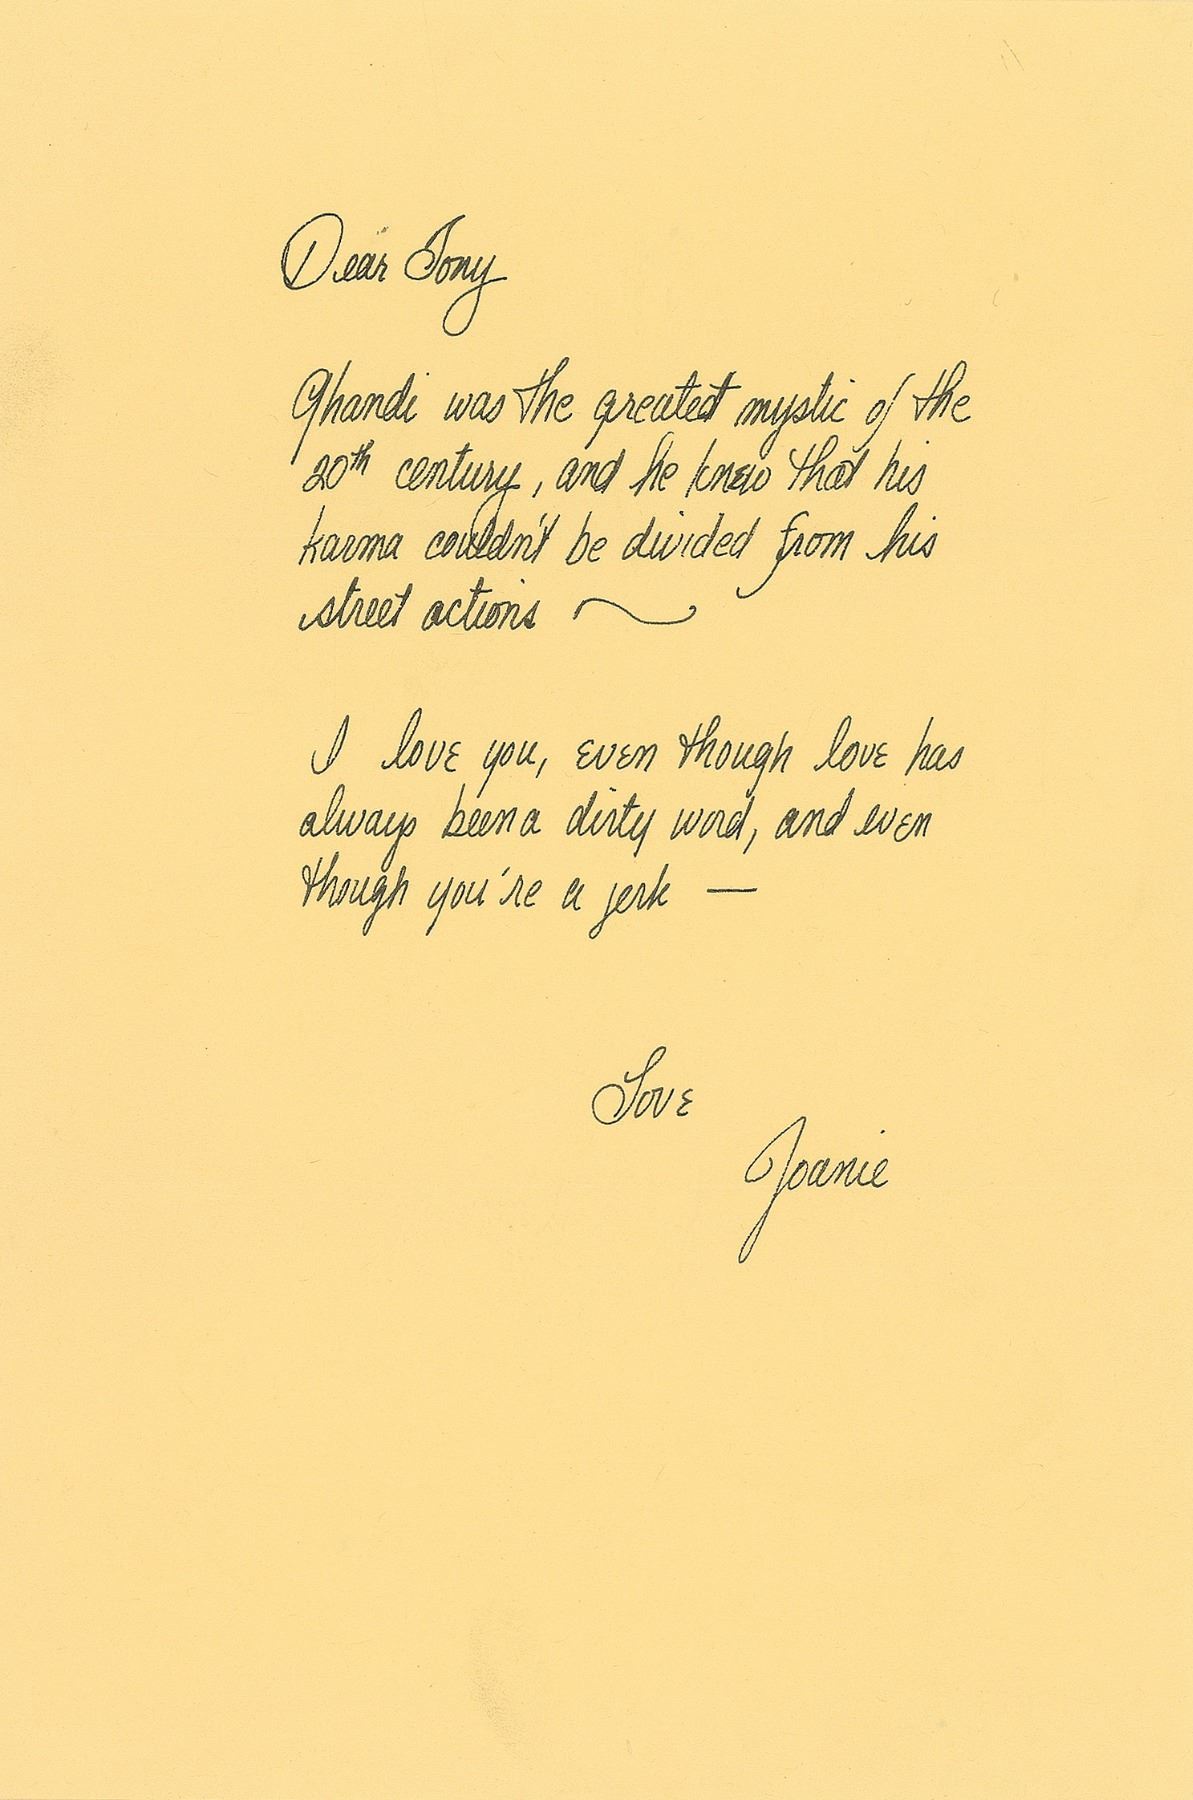 Dear Tony
Ghandi was the greatest mystic of the
20th century, and he knew that his
karma couldn't be divided from his
street actions ~
I love you, even though love has
always been a dirty word, and even
though you're a jerk —
Love
Joanie